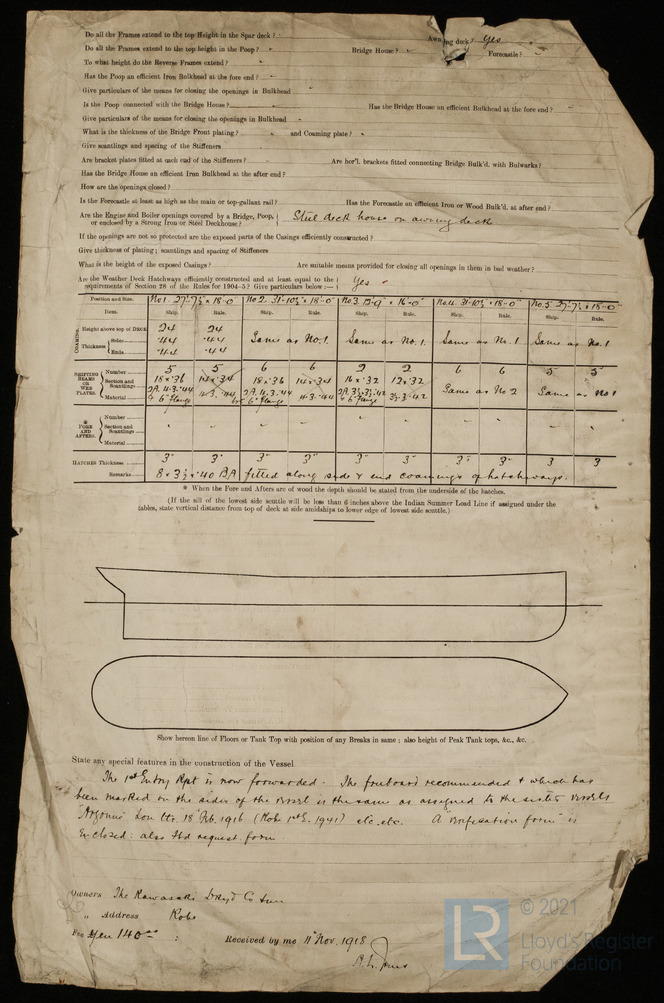 Do all the Frames extend to the top Height in the Spar deck? - Awning deck? Yes
Do all the Frames extend to the top height in the Poop? - Bridge House? - Forecastle? -
To what height do the Reverse Frames extend? -
Has the Poop an efficient Iron Bulkhead at the fore end? -
Give particulars of the means for closing the openings in Bulkhead
Is the Poop connected with the Bridge House? Has the Bridge House an efficient Bulkhead at the fore end? -
Give particulars of the means for closing the openings in Bulkhead
What is the thickness of the Bridge Front plating? - and Coaming plate? -
Give scantlings and spacing of the Stiffeners
Are bracket plates fitted at each end of the Stiffeners? - Are hor'l. brackets fitted connecting Bridge Bulk'd. with Bulwarks?
Has the Bridge House an efficient Iron Bulkhead at the after end?
How are the openings closed?
Is the Forecastle at least as high as the main or top-gallant rail? Has the Forecastle an efficient Iron or Wood Bulk'd. at after end?
Are the Engine and Boiler openings covered by a Bridge, Poop, or enclosed by a Strong Iron or Steel Deckhouse? Steel deck house on awning deck
If the openings are not so protected are the exposed parts of the Casings efficiently constructed?
Give thickness of plating; scantlings and spacing of Stiffeners
What is the height of the exposed Casings? Are suitable means provided for closing all openings in them in bad weather?
Are the Weather Deck Hatchways efficiently constructed and at least equal to the requirements of Section 28 of the Rules for 1904-5? Give particulars below:— Yes
Position and Size. No 1. 27'-7½" x 18'-0 No 2. 31'-10½" x 18'-0" No 3. x 16'-0" No 4. 31'-10½" x 18'-0" No 5. 27'-7½" x 18'-0"
Item. Ship. Rule. Ship. Rule. Ship. Rule. Ship. Rule. Ship. Rule.
COAMING. Height above top of DECK 24 24
Thickness Sides .44 .44 Same as No. 1. Same as No. 1. Same as No. 1. Same as No 1
Ends .44 .44
SHIFTING BEAMS OR WEB PLATES. Number 5 5 6 6 2 2 6 6 5 5
Section and Scantlings 18 x .36 14 x .34 18 x .36 14 x .34 16 x .32 12 x .32 Same as No 2 Same as No 1
Material 6" flange 6" flange 6" flange
* FORE AND AFTERS. Number
Section and Scantlings - - - - - - - -
Material
HATCHES Thickness 3" 3" 3" 3" 3" 3" 3" 3" 3 3
Remarks 8 x 3½ x .40 BA fitted along side & end coamings of hatchways.
* When the Fore and Afters are of wood the depth should be stated from the underside of the hatches.
(If the sill of the lowest side scuttle will be less than 6 inches above the Indian Summer Load Line if assigned under the
tables, state vertical distance from top of deck at side amidships to lower edge of lowest side scuttle.)
Show hereon line of Floors or Tank Top with position of any Breaks in same; also height of Peak Tank tops, &c., &c.
State any special features in the construction of the Vessel
The 1st Entry Rpt is now forwarded. The freeboard recommended & which has
been marked on the sides of the vessel is the same as assigned to the sister vessels
Lon ltr. 18 Feb. 1916 (Kobe 1st E. 1941) etc. etc. A verification form is
enclosed: also request form
Owners The Kawasaki Dkyd Co
" Address Kobe
Fee Yen 140.00 : Received by me 11 Nov. 1918
LR
© 2021
Lloyd's Register
Foundation